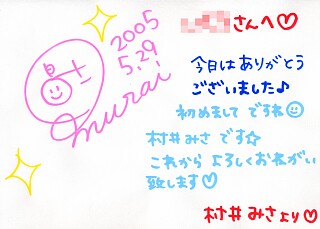 さんへ♡
2005
5.29
murai
今日は ありがとう
ございました♪
初めまして ですね☺
村井みさ です☆
これから よろしくおねがい
致します♡
村井 みさより♡